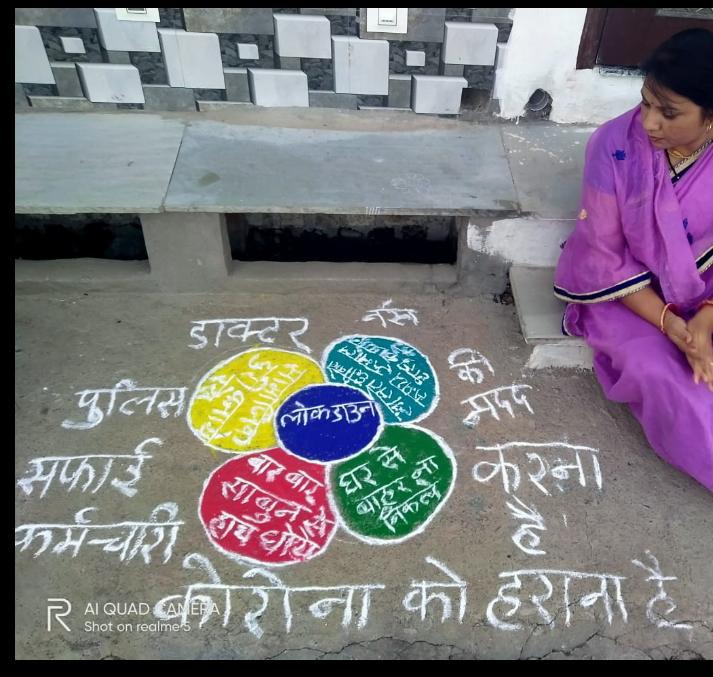 डाक्टर नर्स
पुलिस
सफाई
कर्मचारी
की
मदद
करना
है
लोकडाउन
बार बार
साबुन से
हाथ धोये
घर से
बाहर ना
निकले
कोरोना को हराना है
AI QUAD CAMERA
Shot on realme 5